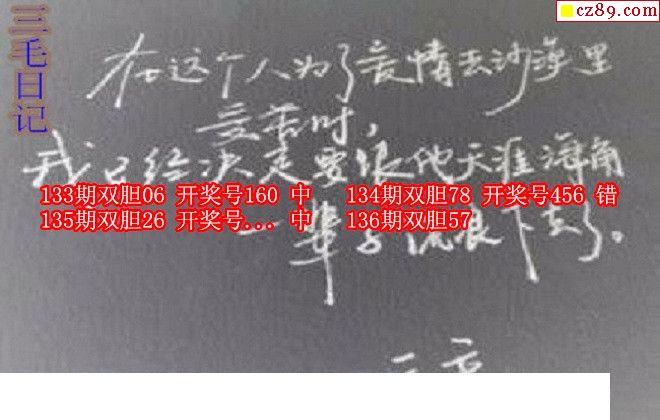 cz89.com
三毛日记
在这个人为了爱情去沙漠里
受苦时，
我已经决定要跟他天涯海角
133期双胆06 开奖号160 中 134期双胆78 开奖号456 错
135期双胆26 开奖号... 中 136期双胆57
一辈子流浪下去了。
三毛